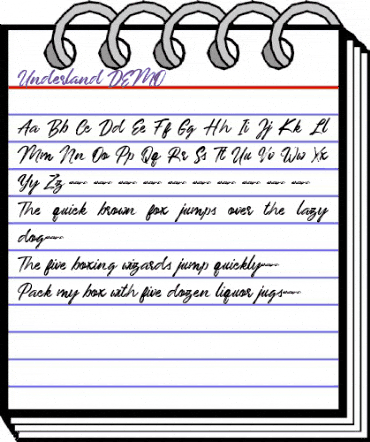 Underland DEMO
Aa Bb Cc Dd Ee Ff Gg Hh Ii Jj Kk Ll
Mm Nn Oo Pp Qq Rr Ss Tt Uu Vv Ww Xx
Yy Zz
The quick brown fox jumps over the lazy
dog
The five boxing wizards jump quickly
Pack my box with five dozen liquor jugs